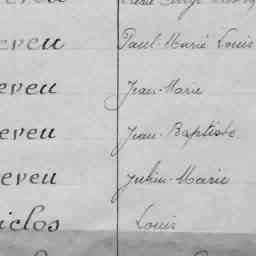 eveu Paul-Marie Louis
eveu Jean-Marie
eveu Jean-Baptiste
eveu Julien-Marie
iclos Louis